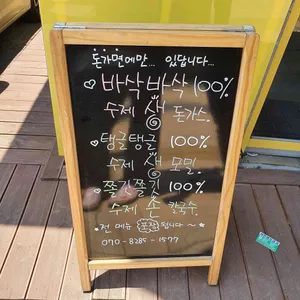 돈가면에만... 있답니다...
♡바삭바삭 100%
수제 생 돈가스.
탱글탱글 100%
수제 생 모밀.
쫄깃쫄깃 100%
수제 손 칼국수.
~ 전 메뉴 포장 됩니다 ~
070-8285-1577